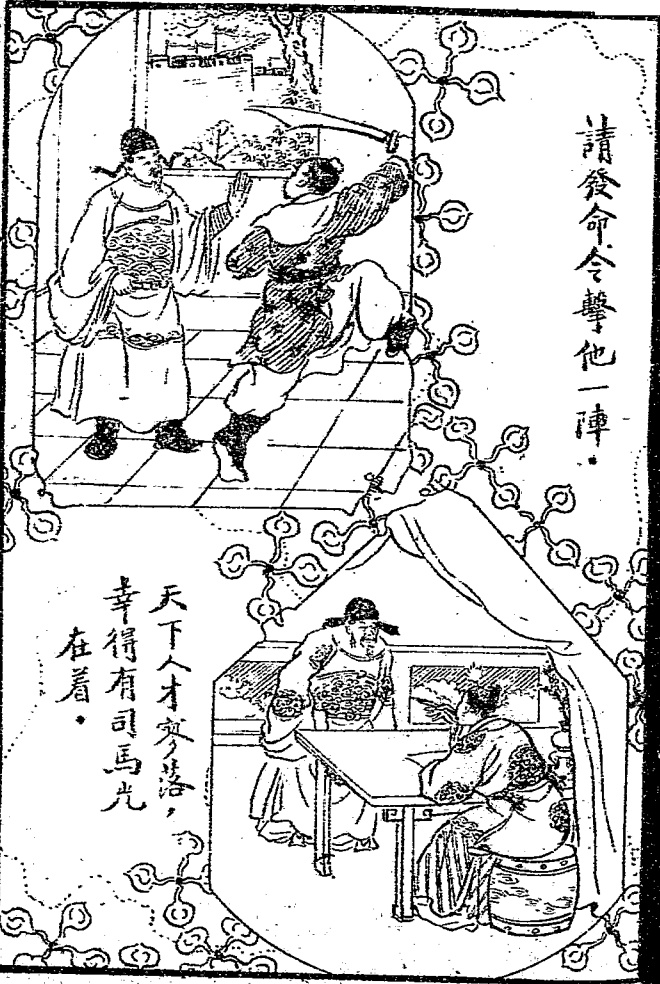 請發命令擊他一陣．
天下人才寥落，
幸得有司馬光
在着．